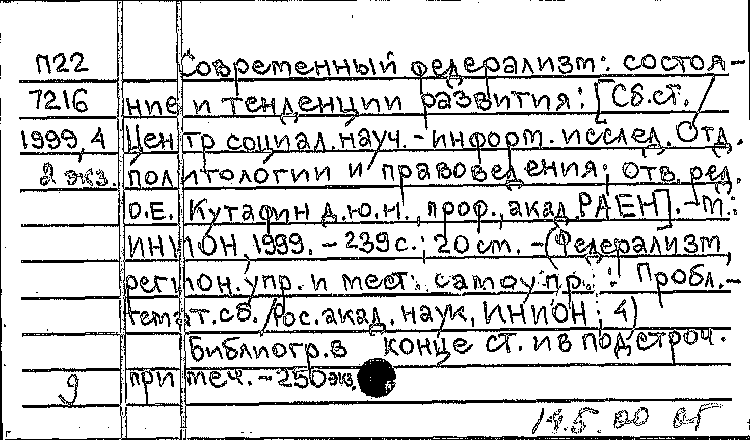 П22 Современный федерализм: состоя-
7216 ние и тенденции развития: [Сб.ст.
1999,4 Центр социал.науч.-информ.исслед. Отд.
2 экз. политологии и правоведения; отв.ред.
О.Е. Кутафин д.ю.н., проф., акад. РАЕН]. - М.:
ИНИОН, 1999. - 239 с.; 20 см. - (Федерализм,
регион.упр. и мест. самоупр. : Пробл.-
темат.сб. / Рос.акад. наук, ИНИОН; 4)
Библиогр.в конце ст. и в подстроч.
9 примеч. - 250 экз.